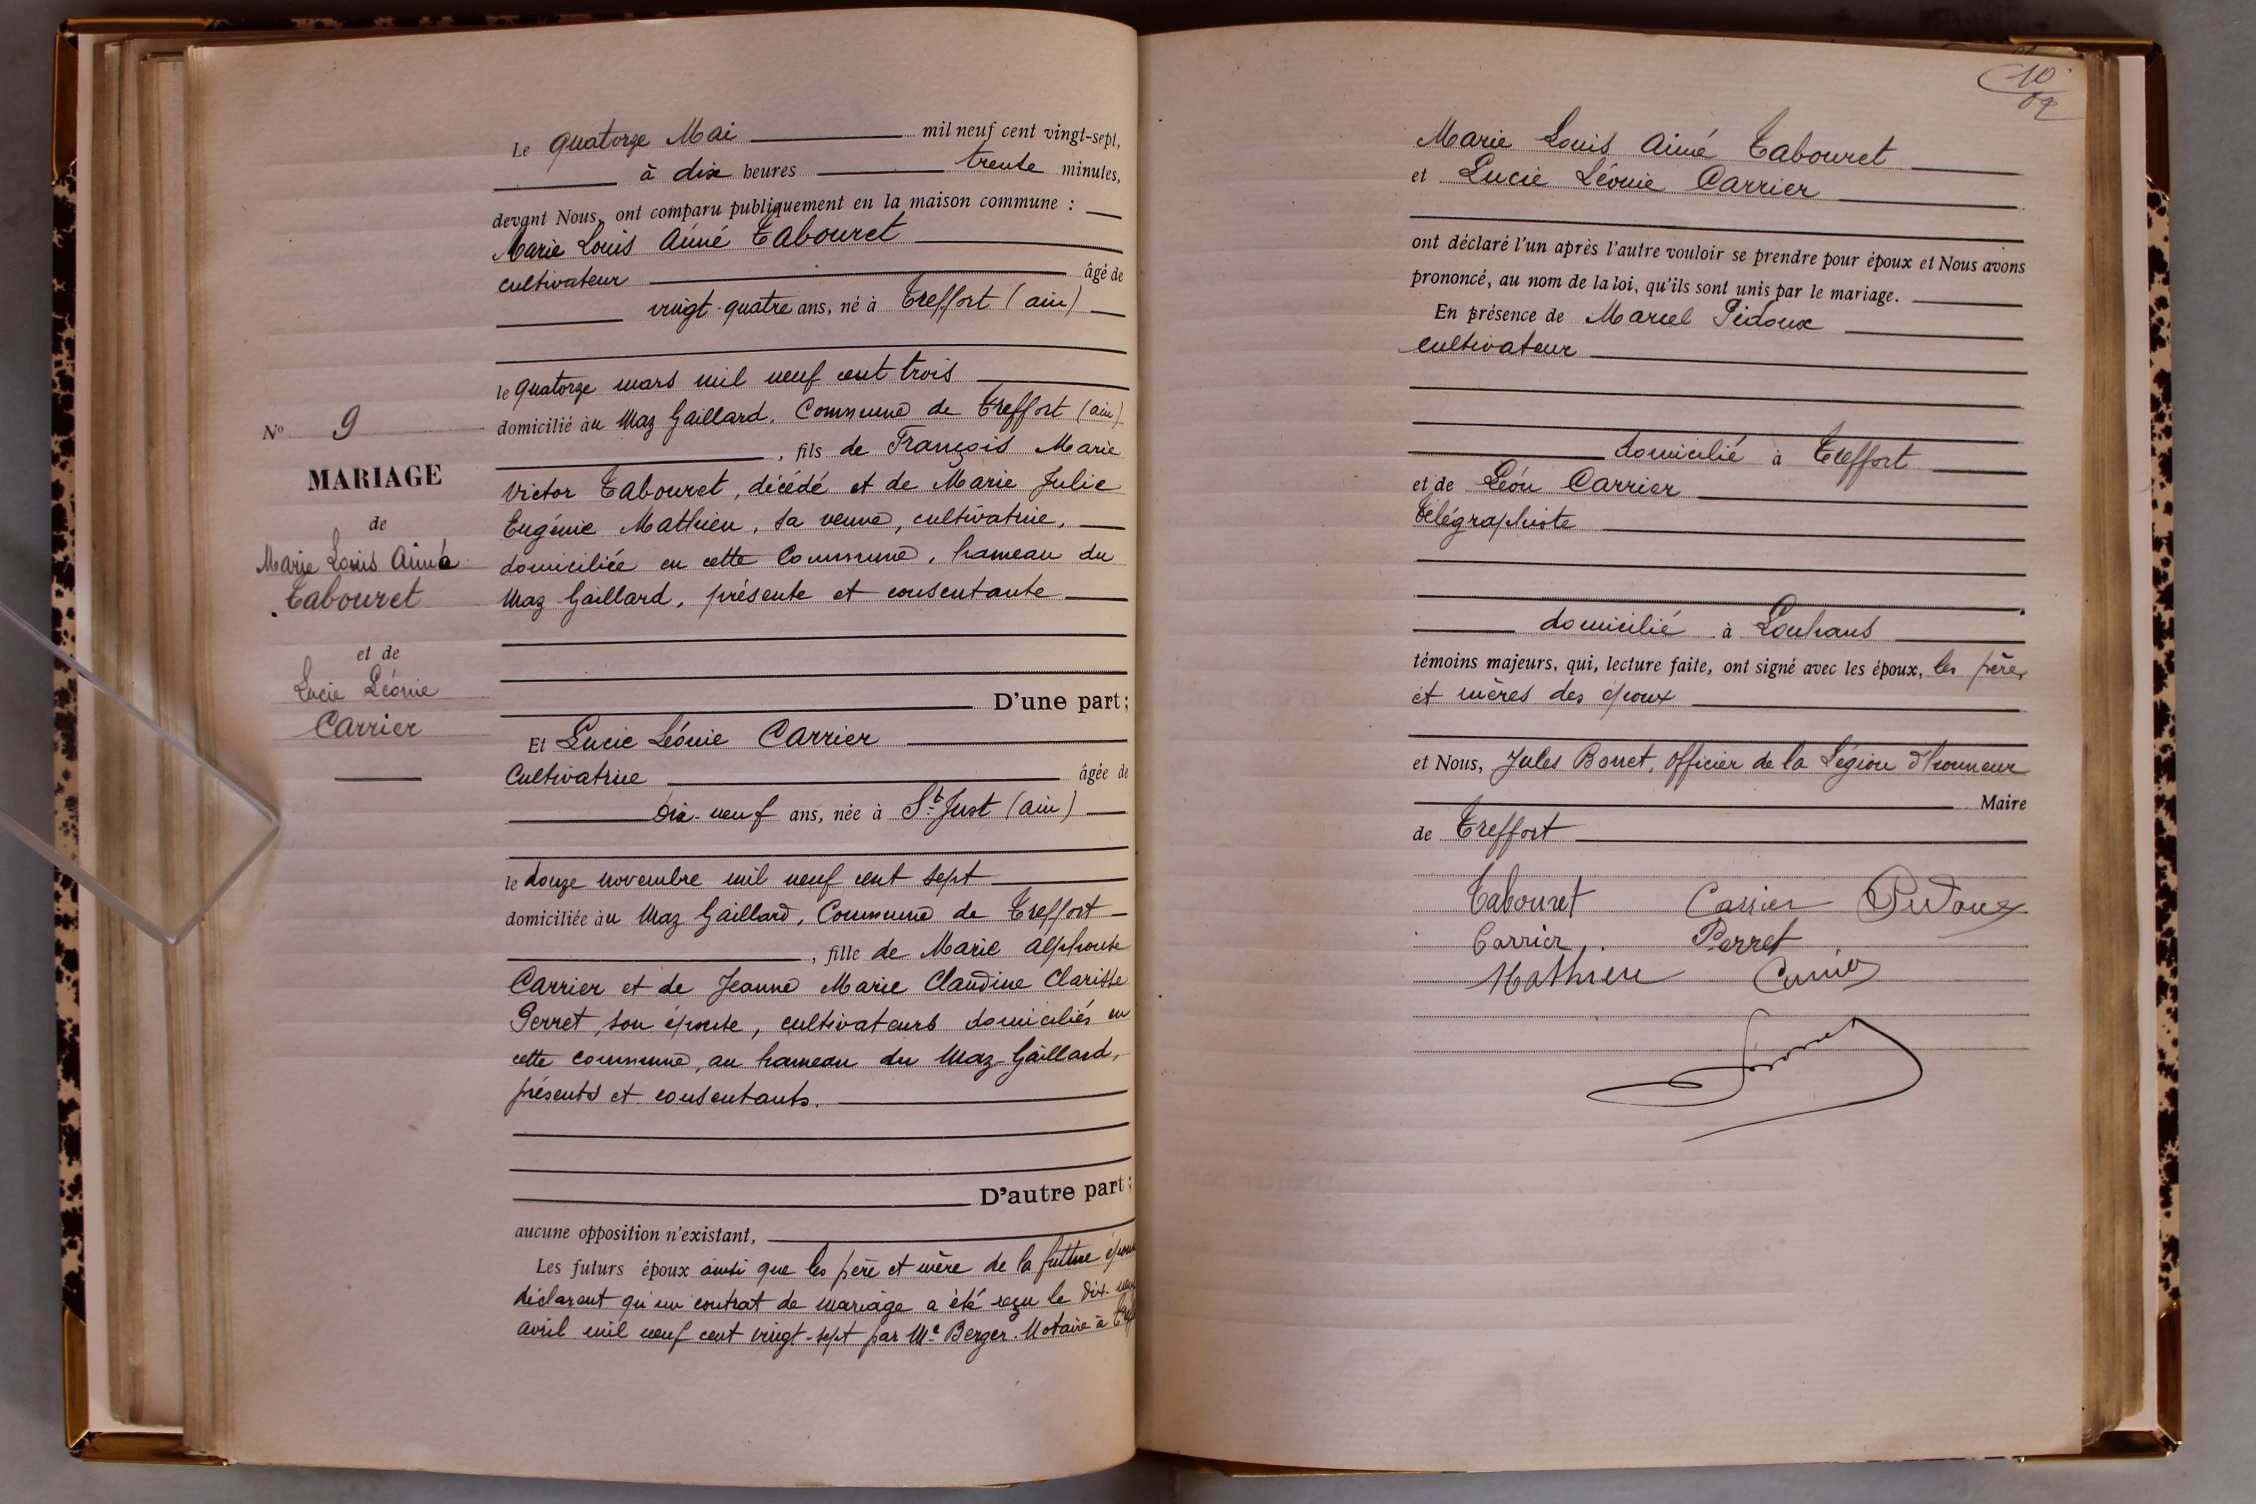 Le quatorze Mai mil neuf cent vingt-sept,
à dix heures trente minutes,
devant Nous, ont comparu publiquement en la maison commune :
Marie Louis Aimé Tabouret
cultivateur âgé de
vingt-quatre ans, né à Treffort (ain)
le quatorze mars mil neuf cent trois
domicilié au Maz Gaillard. Commune de Treffort (ain)
, fils de François Marie
Victor Tabouret, décédé et de Marie Julie
Eugénie Mathieu, sa veuve, cultivatrice,
domiciliée en cette Commune, hameau du
Maz Gaillard, présente et consentante
D'une part;
Et Lucie Léonie Carrier
Cultivatrice âgée de
Dix-neuf ans, née à St Just (ain)
le douze novembre mil neuf cent sept
domiciliée au Maz Gaillard, Commune de Treffort
, fille de Marie Alphonse
Carrier et de Jeanne Marie Claudine Clarisse
Perret, son épouse, cultivateurs domiciliés en
cette commune, au hameau du Maz-Gaillard,
présents et consentants.
D'autre part;
aucune opposition n'existant,
Les futurs époux ainsi que les père et mère de la future
déclarent qu'un contrat de mariage a été reçu le dix-
avril mil neuf cent vingt-sept par Me Berger. Notaire à
No 9
MARIAGE
de
Marie Louis Aimé
Tabouret
et de
Lucie Léonie
Carrier
10
Marie Louis Aimé Tabouret
et Lucie Léonie Carrier
ont déclaré l'un après l'autre vouloir se prendre pour époux et Nous avons
prononcé, au nom de la loi, qu'ils sont unis par le mariage.
En présence de Marcel Pidoux
cultivateur
domicilié à Treffort
et de Léon Carrier
Télégraphiste
domicilié à Louhans
témoins majeurs, qui, lecture faite, ont signé avec les époux, les pères
et mères des époux
et Nous, Jules Bonnet, Officier de la Légion d'honneur
Maire
de Treffort
Tabouret Carrier Pidoux
Carrier Perret
Mathieu Carrier